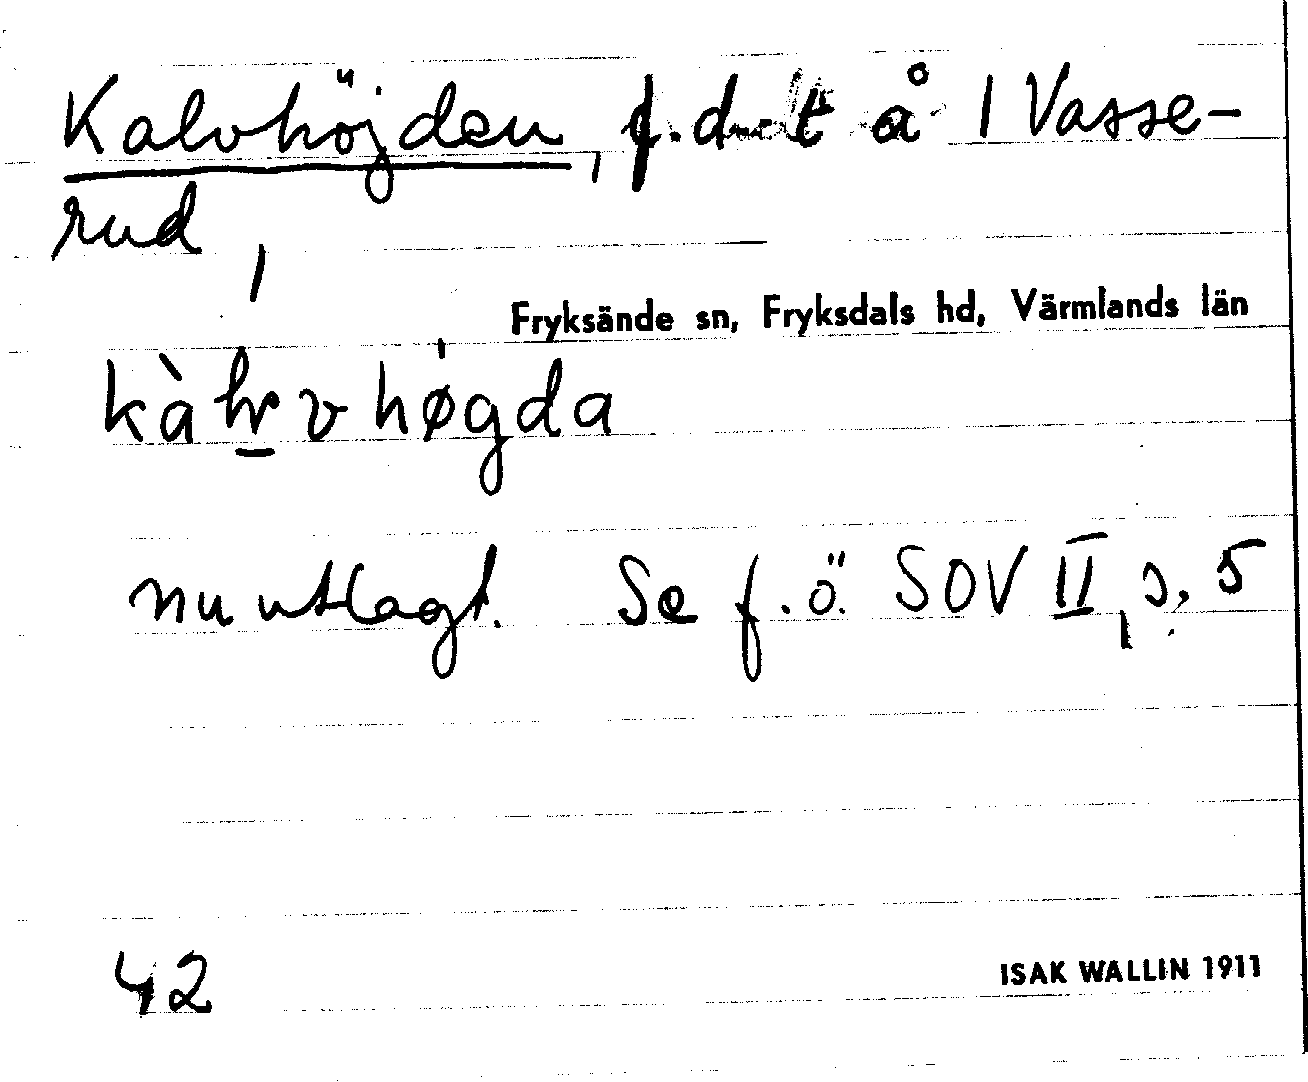 Kalvhöjden, f.d. t å 1 Vasse-
rud,
Fryksände sn, Fryksdals hd, Värmlands län
nu utlagt. Se f.ö. SOV II, s. 5
42
ISAK WALLIN 1911